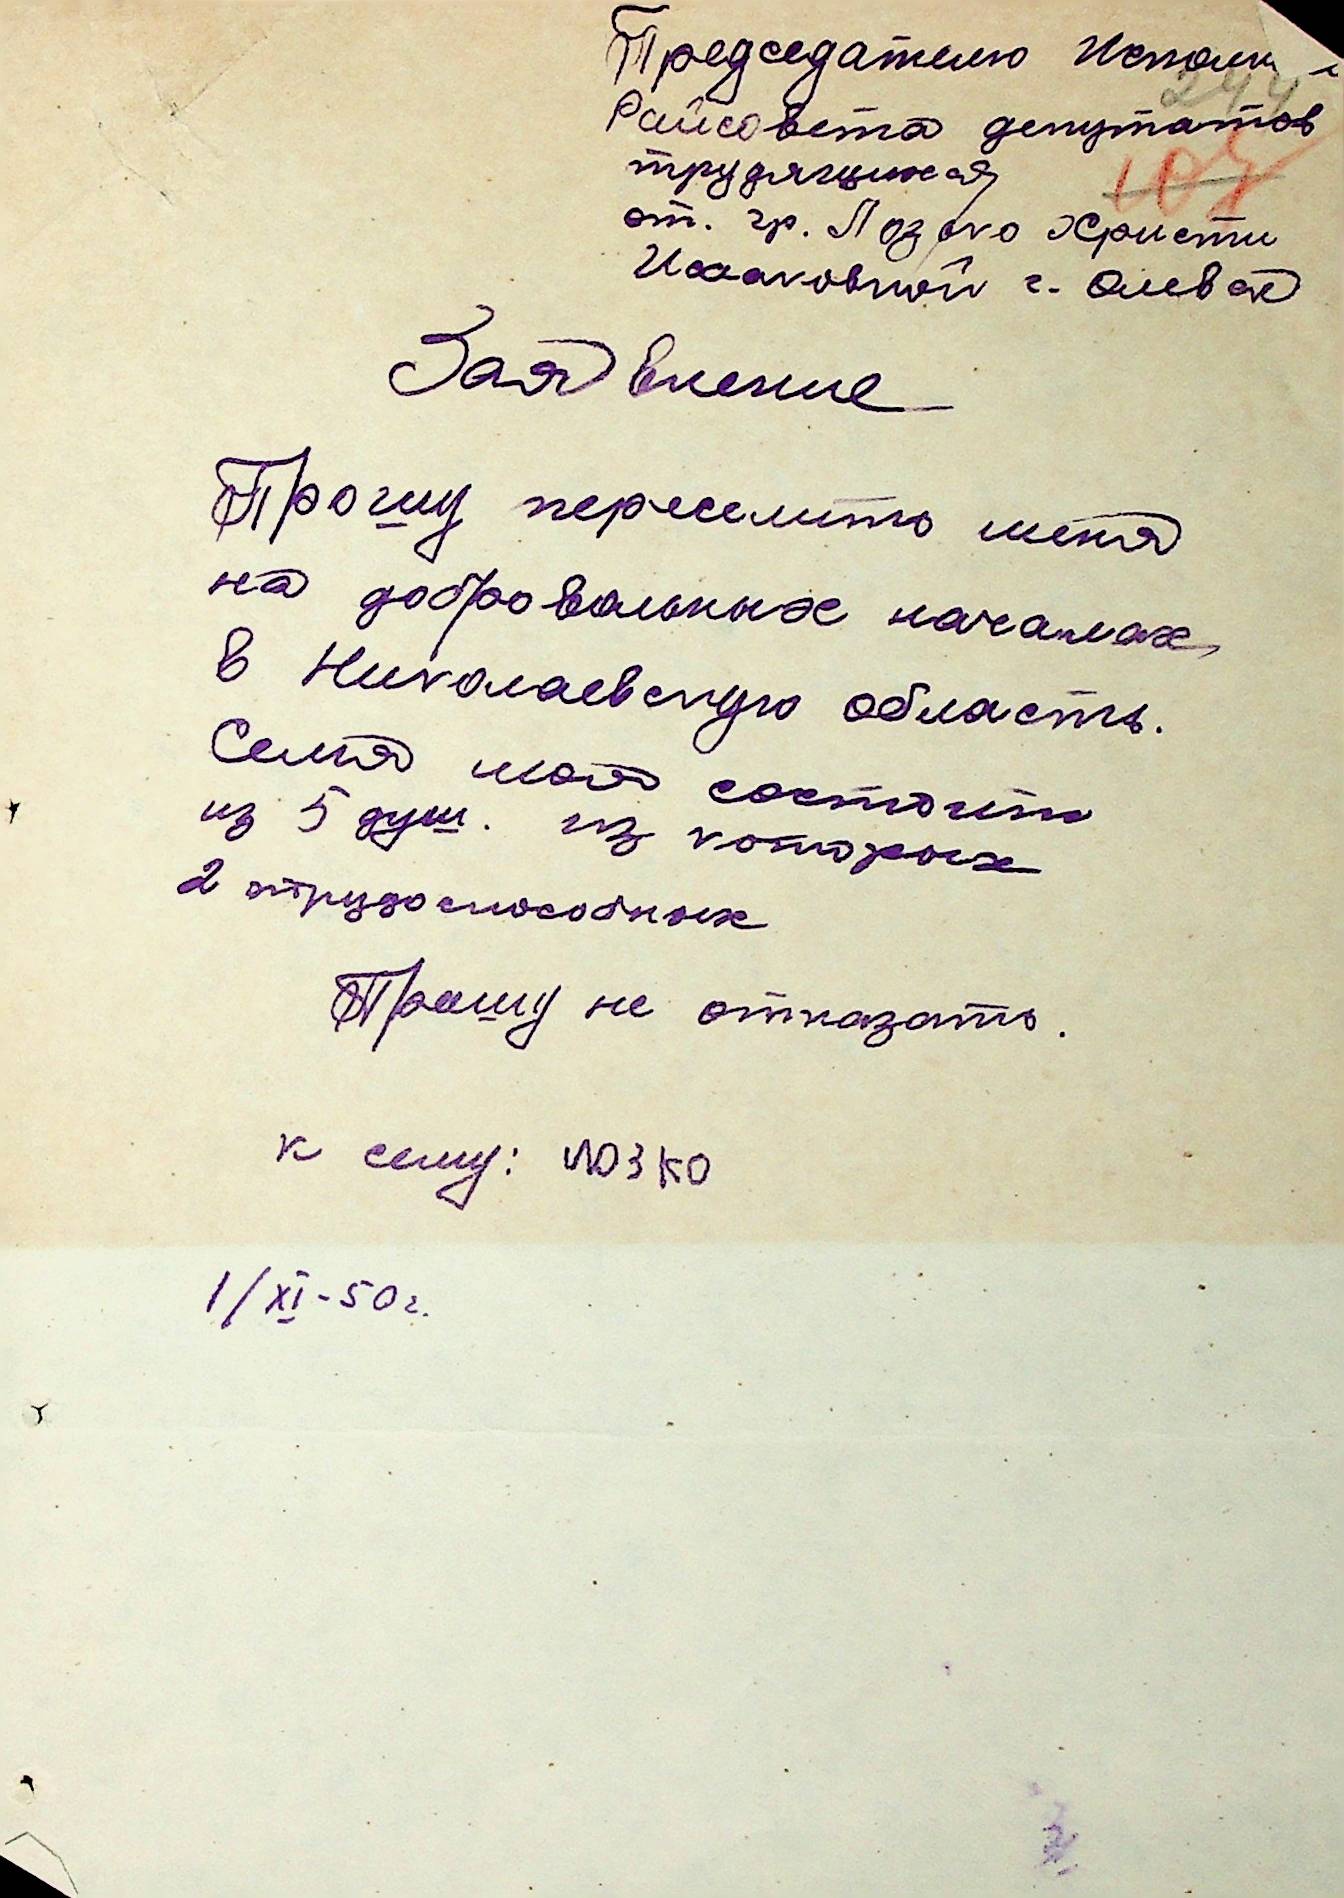 Председателю Исполк
244
Райсовета депутатов
трудящихся
от. гр. Лозко Христи
Исаковной г. Олевск
Заявление
Прошу переселить меня
на добровольных началах
в Николаевскую область.
Семья моя состоит
из 5 душ. из которых
2 трудоспособных
Прошу не отказать.
к сему: ЛОЗКО
1/XI-50г.